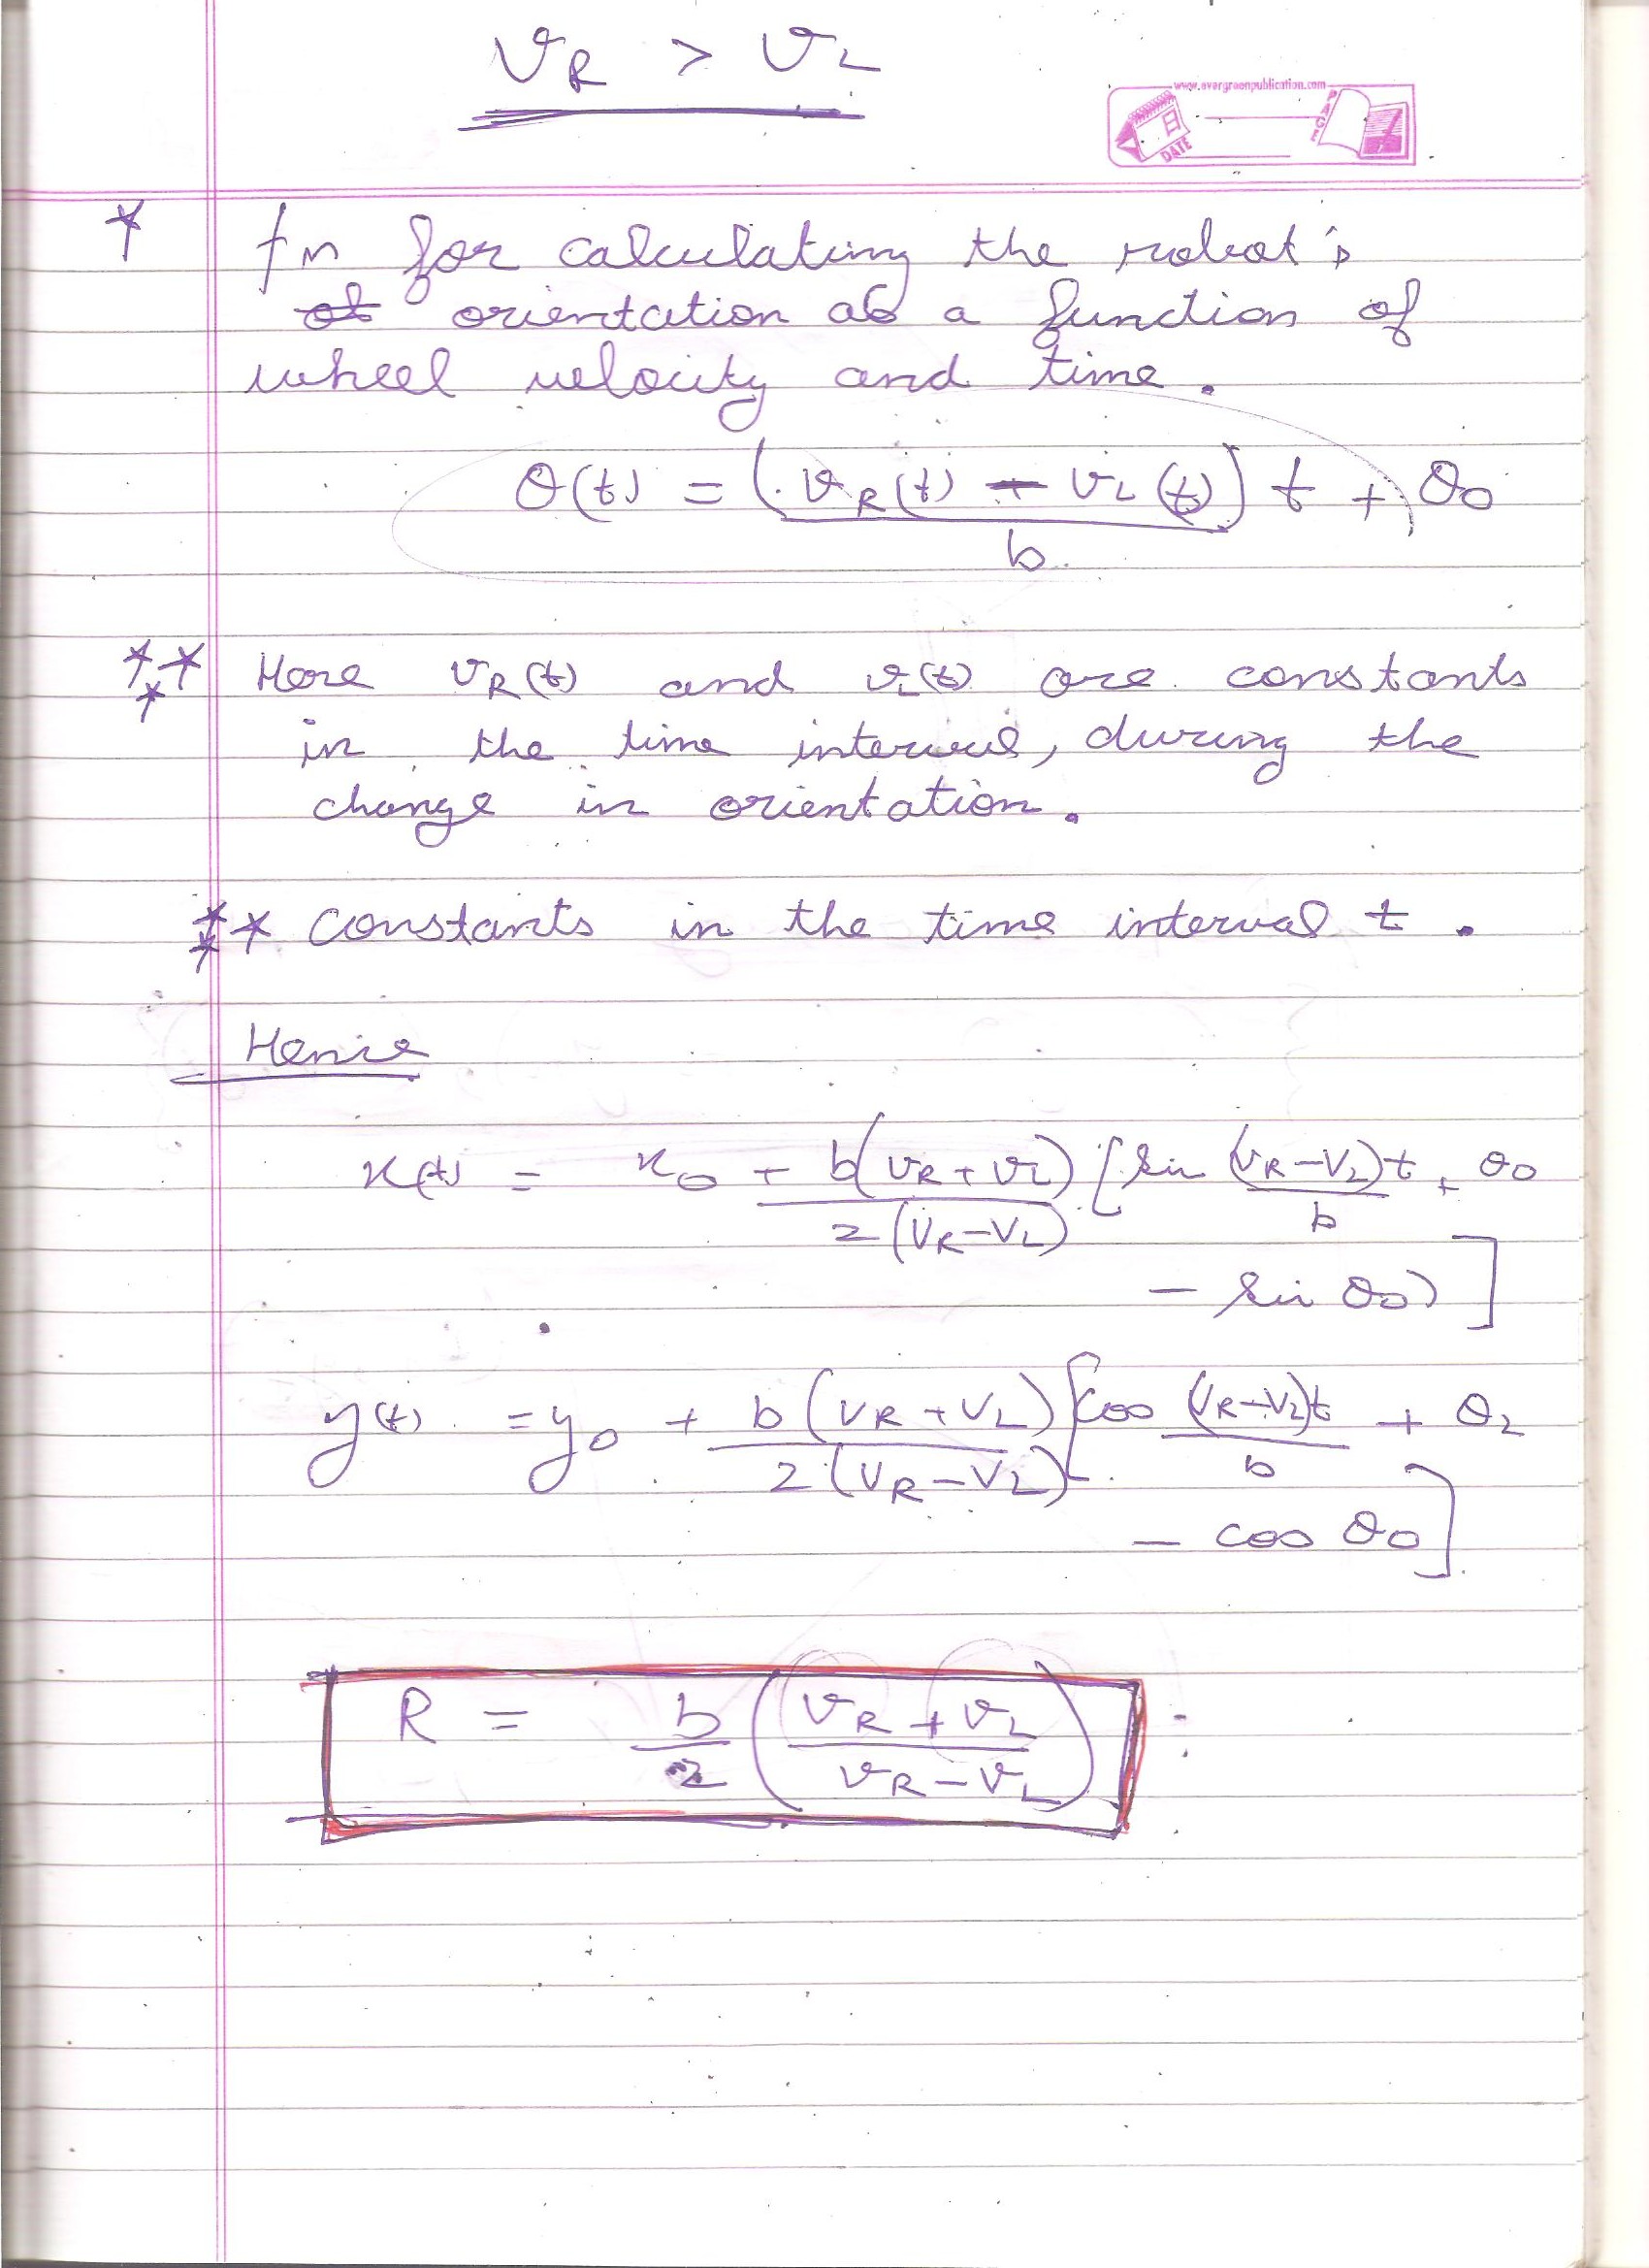 v_R > v_L
www.evergreenpublication.com
PAGE
DATE
* fn for calculating the robot's
orientation as a function of
wheel velocity and time.
θ(t) = (v_R(t) - v_L(t)) t + θ0
b
*** Here v_R(t) and v_L(t) are constants
in the time interval, during the
change in orientation.
*** constants in the time interval t.
Hence
x(t) = x0 + b(v_R + v_L) [sin (v_R - v_L)t + θ0
2(v_R - v_L) b
- sin θ0)]
y(t) = y0 + b(v_R + v_L) [cos (v_R - v_L)t + θ2
2(v_R - v_L) b
- cos θ0]
R = b (v_R + v_L) :
2 (v_R - v_L)